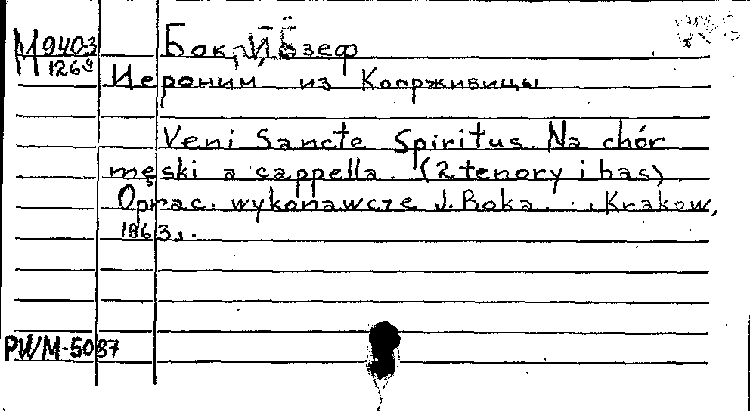 М 940-3
126⁹
Бок, Йозеф
Иероним из Коорживицы
Veni Sancte Spiritus. Na chór
męski a cappella. (2 tenory i bas)
Oprac. wykonawcze J. Boka. Kraków,
1963.
PWM-5087